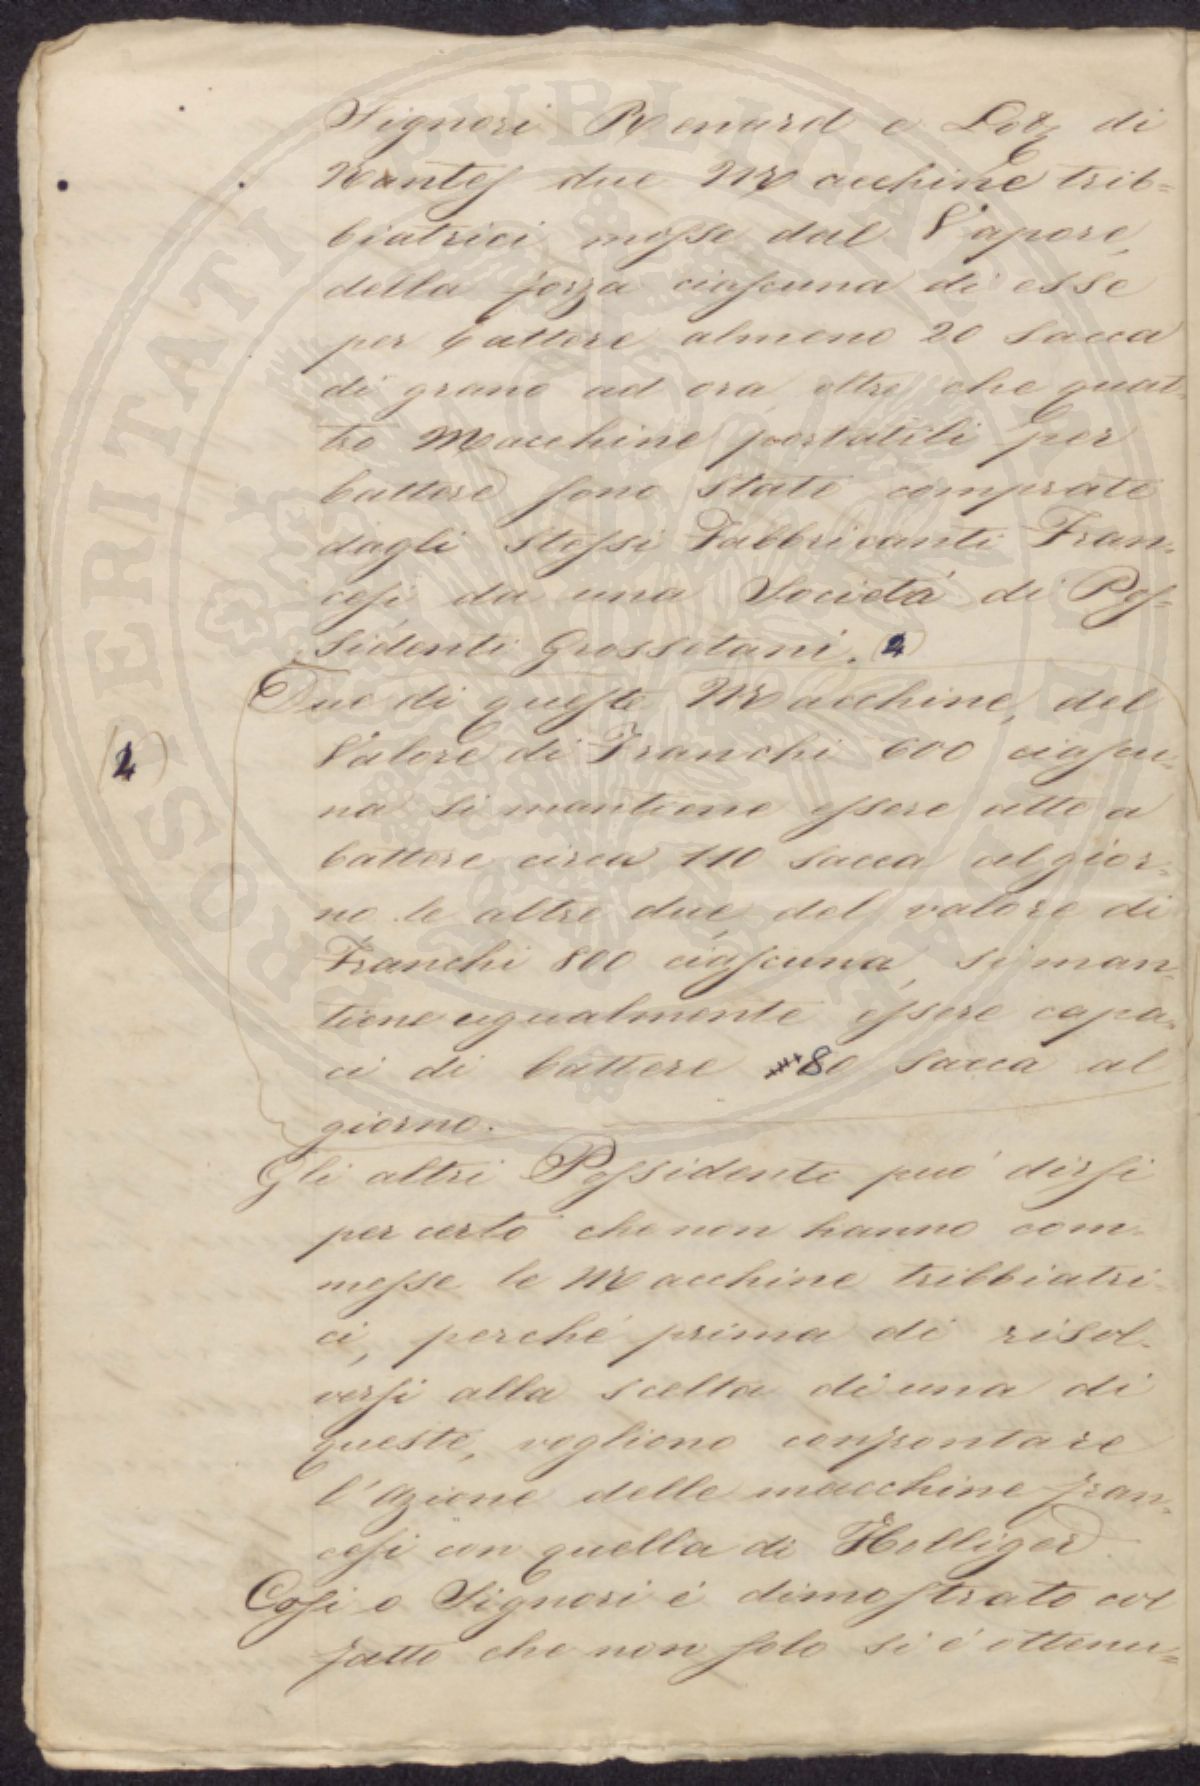 Signori Renard e Lotz di
Nantes due Macchine trib=
biatrici mosse dal Vapore,
della forza ciascuna di esse
per battere almeno 20 sacca
di grano ad ora, oltre che quat=
tro Macchine portatili per
battere sono state comprate
dagli stessi Fabbricanti Fran=
cesi da una Società di Pos=
sidenti Grossetani. (2)
Due di queste Macchine, del
Valore di Franchi 600 ciascu=
(2)
na si mantiene essere atte a
battere circa 110 sacca al gior=
no le altre due, del valore di
Franchi 800 ciascuna, si man=
tiene ugualmente essere capa=
ci di battere 80 sacca al
giorno.
Gli altri Possidenti può dirsi
per certo che non hanno com=
messe le Macchine tribbiatri=
ci, perché prima di risol=
versi alla scelta di una di
queste, vogliono confrontare
l'azione delle macchine fran=
cesi con quella di Holliger
Cosi o Signori è dimostrato col
fatto che non solo si é ottenu=
PROSPERITATI PUBLICAE AUGENDAE